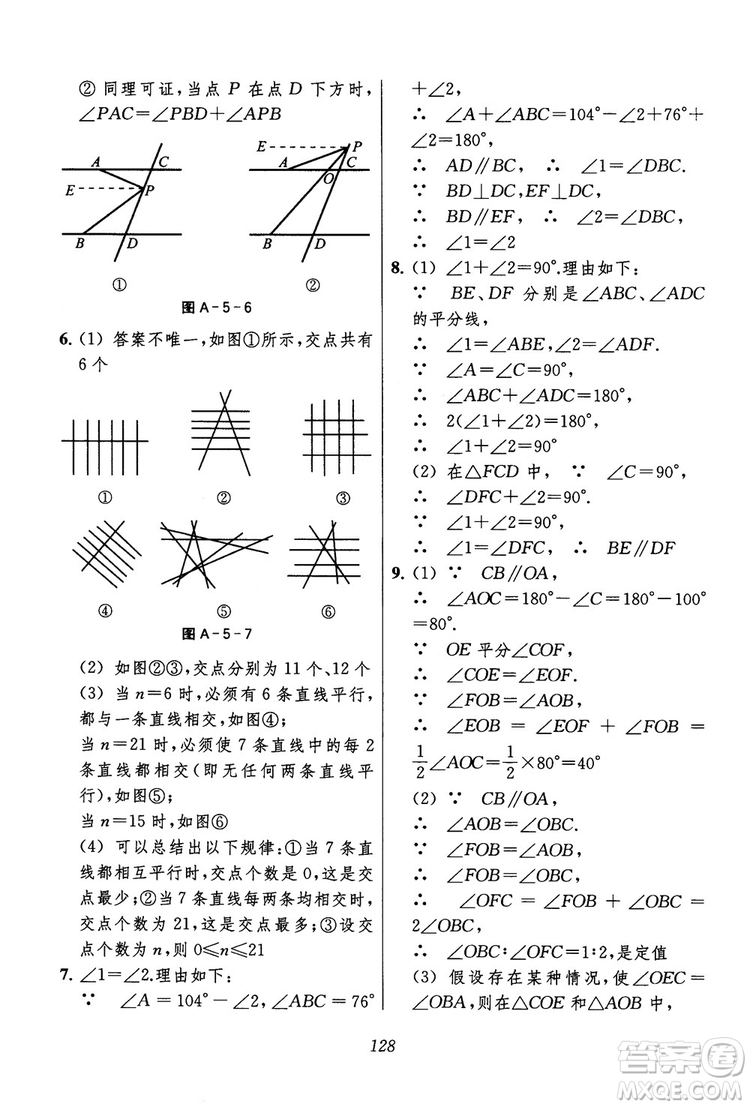 ② 同理可证,当点 P 在点 D 下方时,
∠PAC=∠PBD+∠APB
A C
E P
B D
①
E P
A C
O
B D
②
图 A-5-6
6. (1) 答案不唯一,如图①所示,交点共有
6 个
① ② ③
④ ⑤ ⑥
图 A-5-7
(2) 如图②③,交点分别为 11 个、12 个
(3) 当 n=6 时,必须有 6 条直线平行,
都与一条直线相交,如图④;
当 n=21 时,必须使 7 条直线中的每 2
条直线都相交(即无任何两条直线平
行),如图⑤;
当 n=15 时,如图⑥
(4) 可以总结出以下规律:①当 7 条直
线都相互平行时,交点个数是 0,这是交
点最少;②当 7 条直线每两条均相交时,
交点个数为 21,这是交点最多;③设交
点个数为 n,则 0≤n≤21
7. ∠1=∠2.理由如下:
∵ ∠A=104°-∠2,∠ABC=76°
+∠2,
∴ ∠A+∠ABC=104°-∠2+76°+
∠2=180°,
∴ AD∥BC, ∴ ∠1=∠DBC.
∵ BD⊥DC,EF⊥DC,
∴ BD∥EF, ∴ ∠2=∠DBC,
∴ ∠1=∠2
8. (1) ∠1+∠2=90°.理由如下:
∵ BE、DF 分别是∠ABC、∠ADC
的平分线,
∴ ∠1=∠ABE,∠2=∠ADF.
∵ ∠A=∠C=90°,
∴ ∠ABC+∠ADC=180°,
∴ 2(∠1+∠2)=180°,
∴ ∠1+∠2=90°
(2) 在△FCD 中, ∵ ∠C=90°,
∴ ∠DFC+∠2=90°.
∵ ∠1+∠2=90°,
∴ ∠1=∠DFC, ∴ BE∥DF
9. (1) ∵ CB∥OA,
∴ ∠AOC=180°-∠C=180°-100°
=80°.
∵ OE 平分∠COF,
∴ ∠COE=∠EOF.
∵ ∠FOB=∠AOB,
∴ ∠EOB = ∠EOF + ∠FOB =
1/2∠AOC=1/2×80°=40°
(2) ∵ CB∥OA,
∴ ∠AOB=∠OBC.
∵ ∠FOB=∠AOB,
∴ ∠FOB=∠OBC,
∴ ∠OFC = ∠FOB + ∠OBC =
2∠OBC,
∴ ∠OBC∶∠OFC=1∶2,是定值
(3) 假设存在某种情况,使∠OEC=
∠OBA,则在△COE 和△AOB 中,
128
答案圈
MXQE.COM